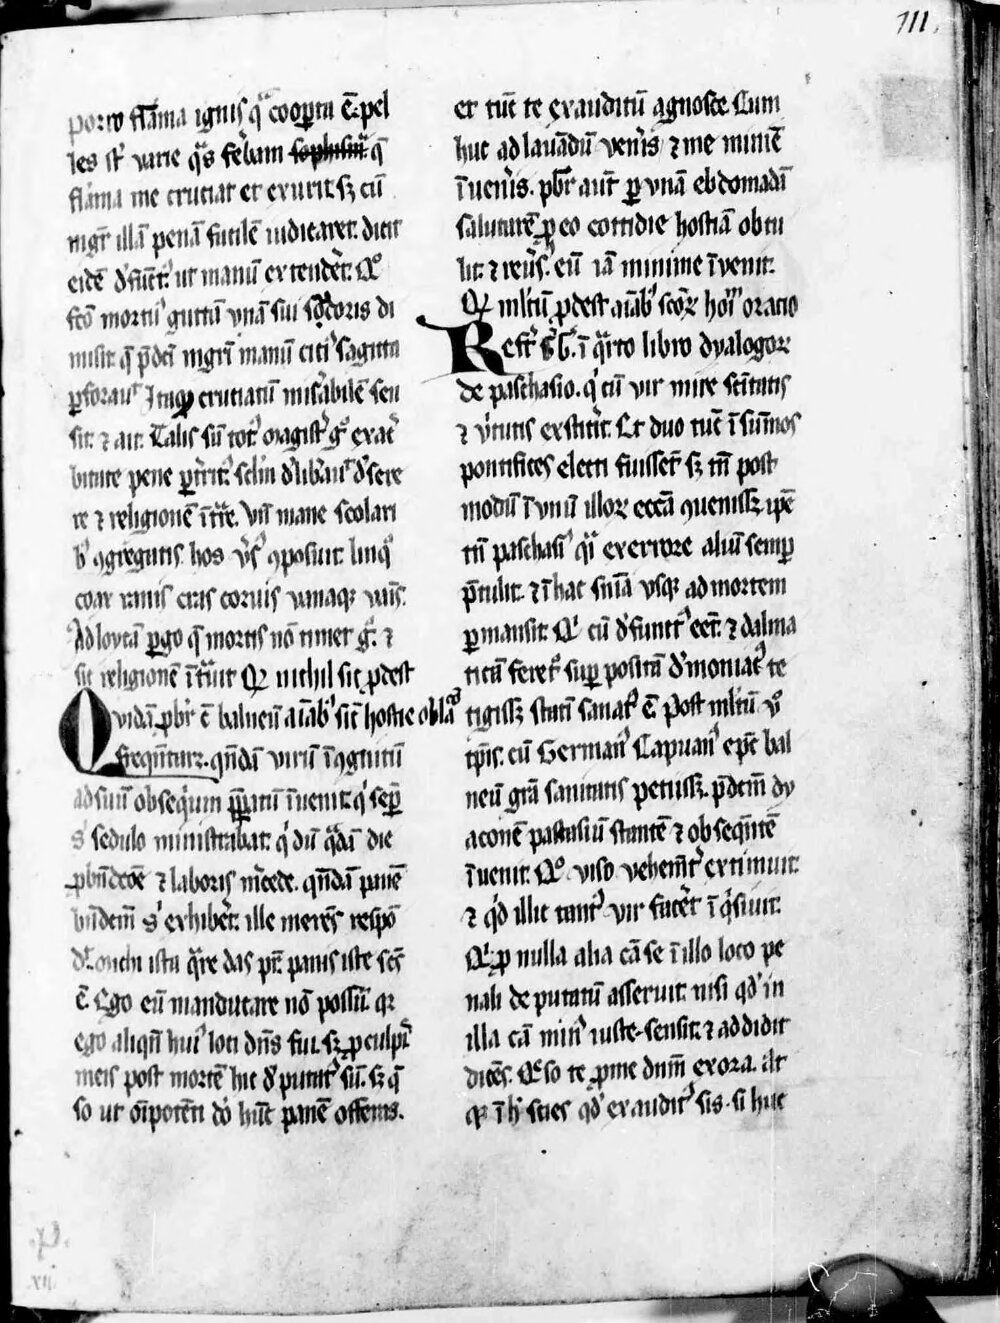 111.
porro flāma ignis qͣ cooperta ē. pel
les sūt varie qͣs ferebam sophismͣ q̄
flāma me cruciat et exurit. sꝫ cū
mgr̄ illā penā futilē iudicaret. dicit
eidē defūctꝰ ut manū extenderet. Qͦ
fc̄o mortuꝰ guttā vnā sui sudoris di
misit. q̄ p̄dc̄i mgr̄i manū citiꝰ sagitta
ꝑforauit
sit. ⁊ ait. Talis sū totꝰ
re ⁊ religionē ītͣre. Vn̄ mane scolari
bꝰ ꝯgregatis. hos v̓sꝰ ꝯposuit. linqͦ
coax ranis cras coruis vanaqꝫ vanis.
Ad loycā ꝑgo q̄ mortis nō timet gͦ. ⁊
sic religionē ītͣuit Qꝫ michil sic ꝓdest
Quidā ꝓbr̄ ē balneū aīabꝰ sic̄ hostie oblaͦ
freqn̄tarꝫ. qn̄dā virū īcognitū
ad suū obsequium ꝑparatū īuenit. qͥ semꝑ
sͥ sedulo ministrabat. qͥ dū qͣdā die
⁊ laboris m̓cede. qn̄dā panē
bn̄dictū sͥ exhiberet. ille merēs respō
dit. michi ista qͣre das pr̄. panis iste sc̄s
ē. Ego eū manducare nō possū. qꝛ
ego aliqn̄ huiꝰ loci dn̄s fui. sꝫ ꝓ culpis
meis post mortē hic deputatꝰ sū. sꝫ q̄
so ut oīpotēti dō hūc panē offeras.
et tūc te exauditū agnosce. Cum
huc ad lauādū ven̓is ⁊ me minīe
īuen̓is. pbr̄ aūt ꝑ vnā ebdomadā
salutarē ꝓ eo cottidie hostiā obtu
lit. ⁊ reu̓sꝰ. eū iā minime īvenit.
Qꝫ ml̄tū ꝓdest aīabꝰ sc̄oꝝ hoīm oratio
Refert ī qͣrto libro dyalogoꝝ
de paschasio. qͥ cū vir mire sc̄itatis
⁊ v̓tutis extitit. Et duo tūc ī sūmos
pontifices electi fuissēt sꝫ tn̄ post
modū ī vnū illoꝝ ecc̄a ꝯuenissꝫ. ipē
tn̄ paschasiꝰ ex errore aliū semꝑ
p̄tulit. ⁊ ī hac sn̄ia vsqꝫ ad mortem
ꝑmansit. Qͥ cū defunctꝰ eēt. ⁊ dalma
ticā feretꝰ sup̱ positā demoniacꝰ te
tigissꝫ statī sanatꝰ ē. Post ml̄tū v̓o
tp̄is. cū Germanꝰ Capuanꝰ ep̄c bal
neū grā sanitatis petissꝫ. p̄dc̄m dy
aconē pascasiū stantē ⁊ obseqn̄tē
īuenit. Qͦ viso vehemēt̓ extimuit.
⁊ qͥd illic tantꝰ vir faceret īqͥsiuit.
Qͥ ꝓ nulla alia cā se ī illo loco pe
nali deputatū asseruit. nisi qd̓ in
illa cā minꝰ iuste sensit. ⁊ addidit
dicēs. Qͤso te ꝓ me dn̄m exora. at
qꝫ ī hͦ scies qd̓ exauditꝰ sis. si huc
xij.